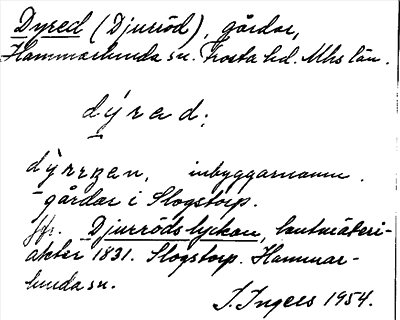 Dyred (Djuröd), gårdar,
Hammarlunda sn. Frosta hd. Mhs län.
dýrad;
dỳrezen, inbyggarnamn.
gårdar i Slogstorp.
Jfr. Djurrödslyckan, lantmäteri-
akter 1831. Slogstorp. Hammar-
lunda sn.
I. Ingers 1954.